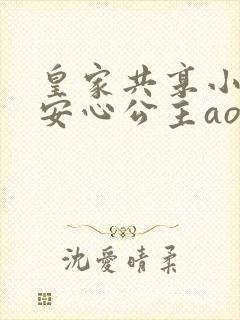 皇家共享小
安心公主ao
沈愛晴柔